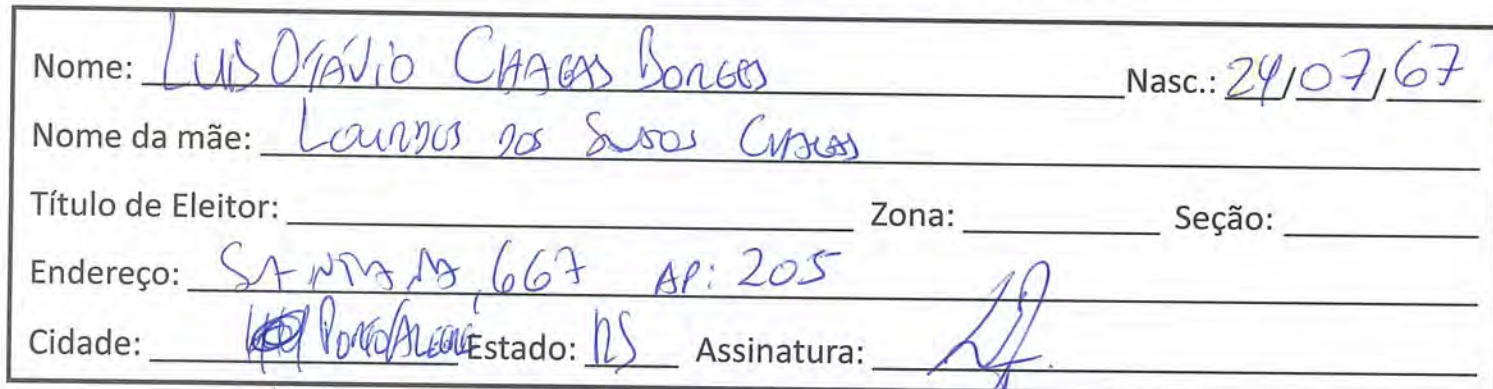 Nome: Luis Otávio Chagas Borges Nasc.: 24/07/67
Nome da mãe: Lourdes dos Santos Chagas
Título de Eleitor: Zona: Seção:
Endereço: SANTANA, 667 AP: 205
Cidade: Porto Alegre Estado: RS Assinatura: